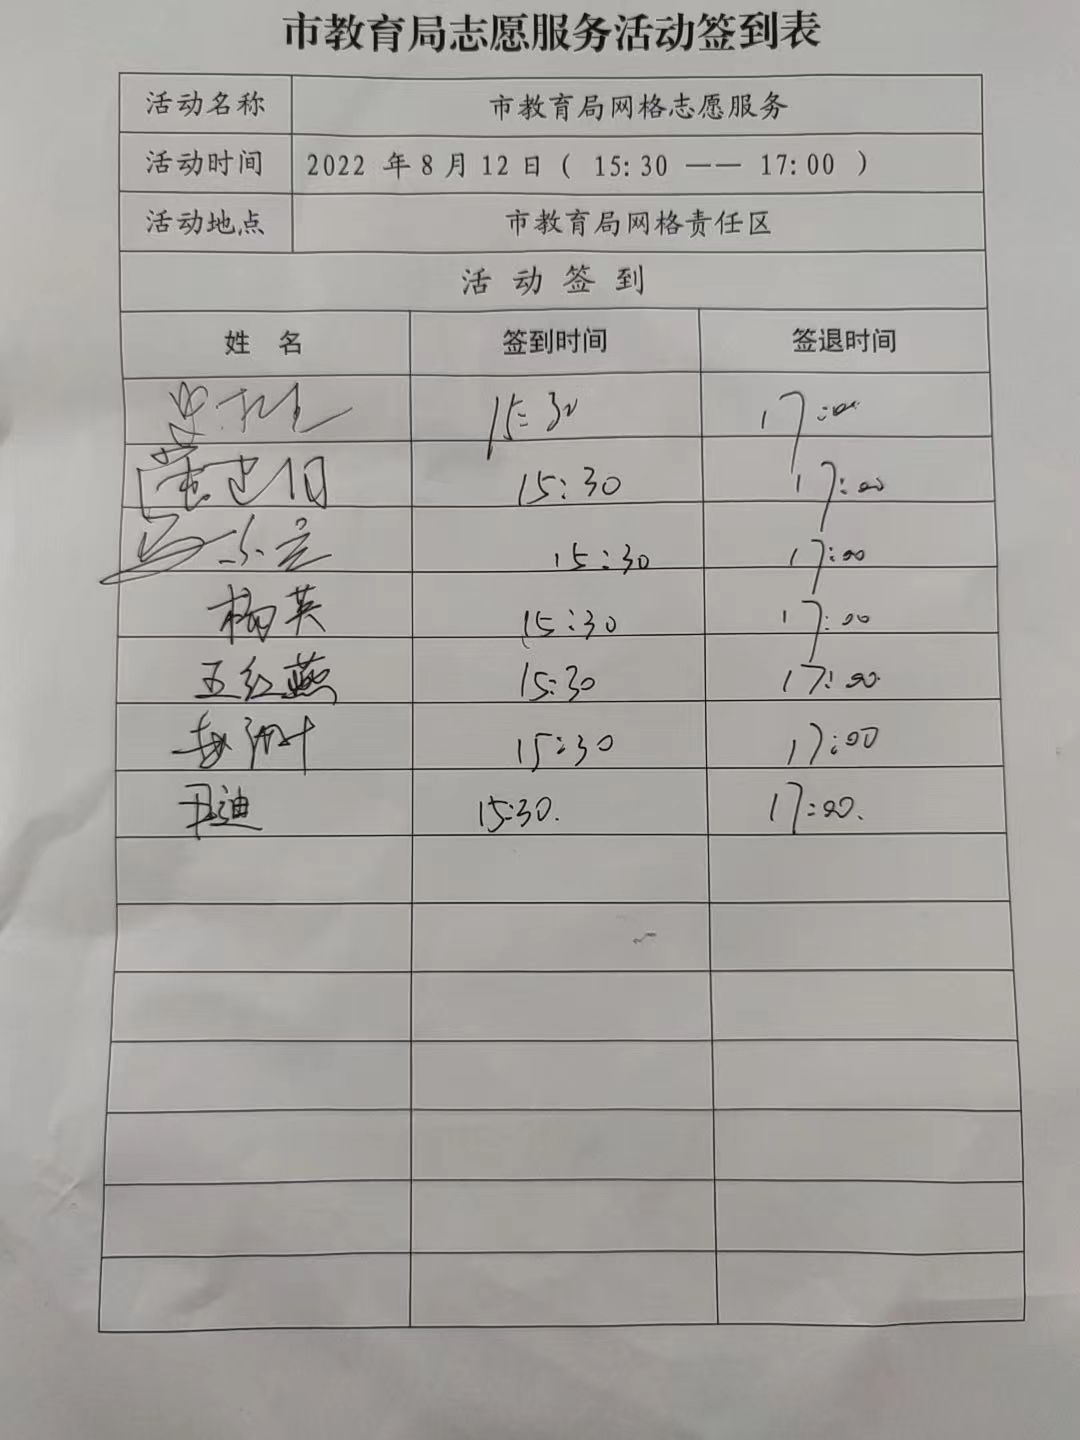 市教育局志愿服务活动签到表
活动名称 市教育局网格志愿服务
活动时间 2022 年 8 月 12 日 ( 15:30 —— 17:00 )
活动地点 市教育局网格责任区
活 动 签 到
姓 名 签到时间 签退时间
15:30 17:00
15:30 17:00
15:30 17:00
杨英 15:30 17:00
王红燕 15:30 17:00
15:30 17:00
迪 15:30. 17:00.